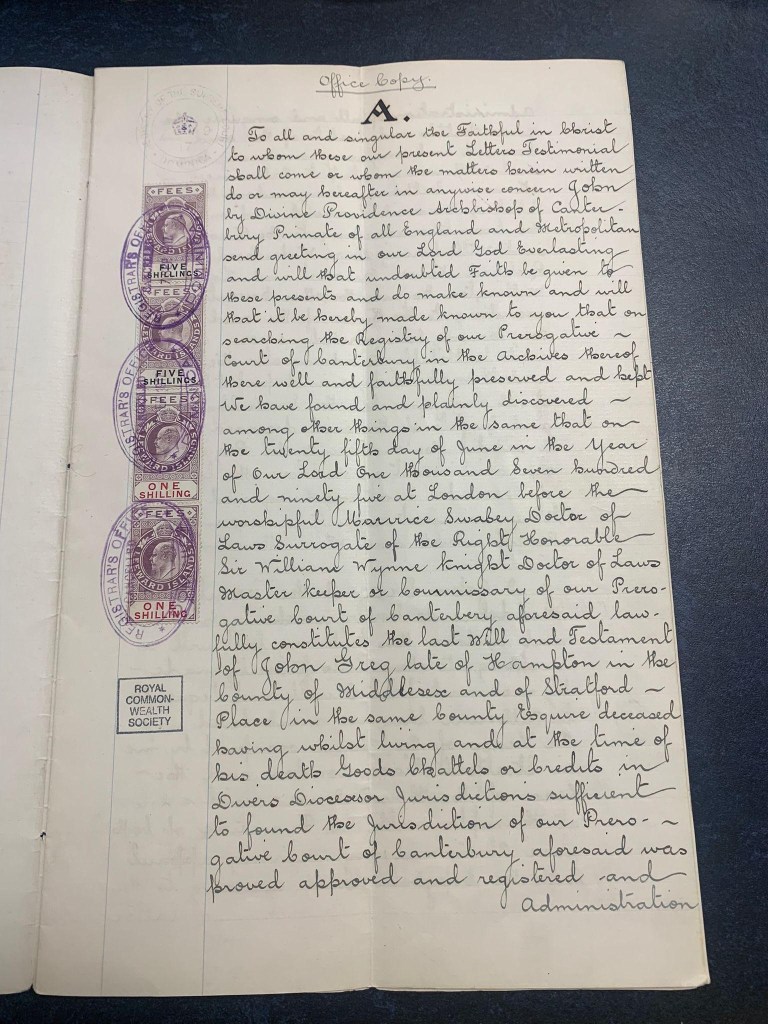 Office Copy.
A.
To all and singular the Faithful in Christ
to whom these our present Letters Testimonial
shall come or whom the matters herein written
do or may hereafter in anywise concern John
by Divine Providence Archbishop of Canter-
bury Primate of all England and Metropolitan
send greeting in our Lord God Everlasting
and will that undoubted Faith be given to
these presents and do make known and will
that it be hereby made known to you that on
searching the Registry of our Prerogative ~
Court of Canterbury in the Archives thereof
there well and faithfully preserved and kept
We have found and plainly discovered ~
among other things in the same that on
the twenty fifth day of June in the Year
of Our Lord One thousand Seven hundred
and ninety five at London before the
worshipful Maurice Swabey Doctor of
Laws Surrogate of the Right Honorable
Sir William Wynne Knight Doctor of Laws
Master Keeper or Commissary of our Prero-
gative Court of Canterbery aforesaid law-
fully constitutes the last Will and Testament
of John Greg late of Hampton in the
County of Middlesex and of Stratford ~
Place in the same County Esquire deceased
having whilst living and at the time of
his death Goods Chattels or Credits in
Divers Diocesesor Jurisdictions sufficient
to found the Jurisdiction of our Prero- ~
gative Court of Canterbury aforesaid was
proved approved and registered and
Administration
FEES
LEEWARD ISLANDS
FIVE
SHILLINGS
FEES
LEEWARD ISLANDS
FIVE
SHILLINGS
FEES
LEEWARD ISLANDS
ONE
SHILLING
FEES
LEEWARD ISLANDS
ONE
SHILLING
REGISTRAR'S OFFICE
REGISTRAR'S OFFICE
REGISTRAR'S OFFICE
ROYAL
COMMON-
WEALTH
SOCIETY